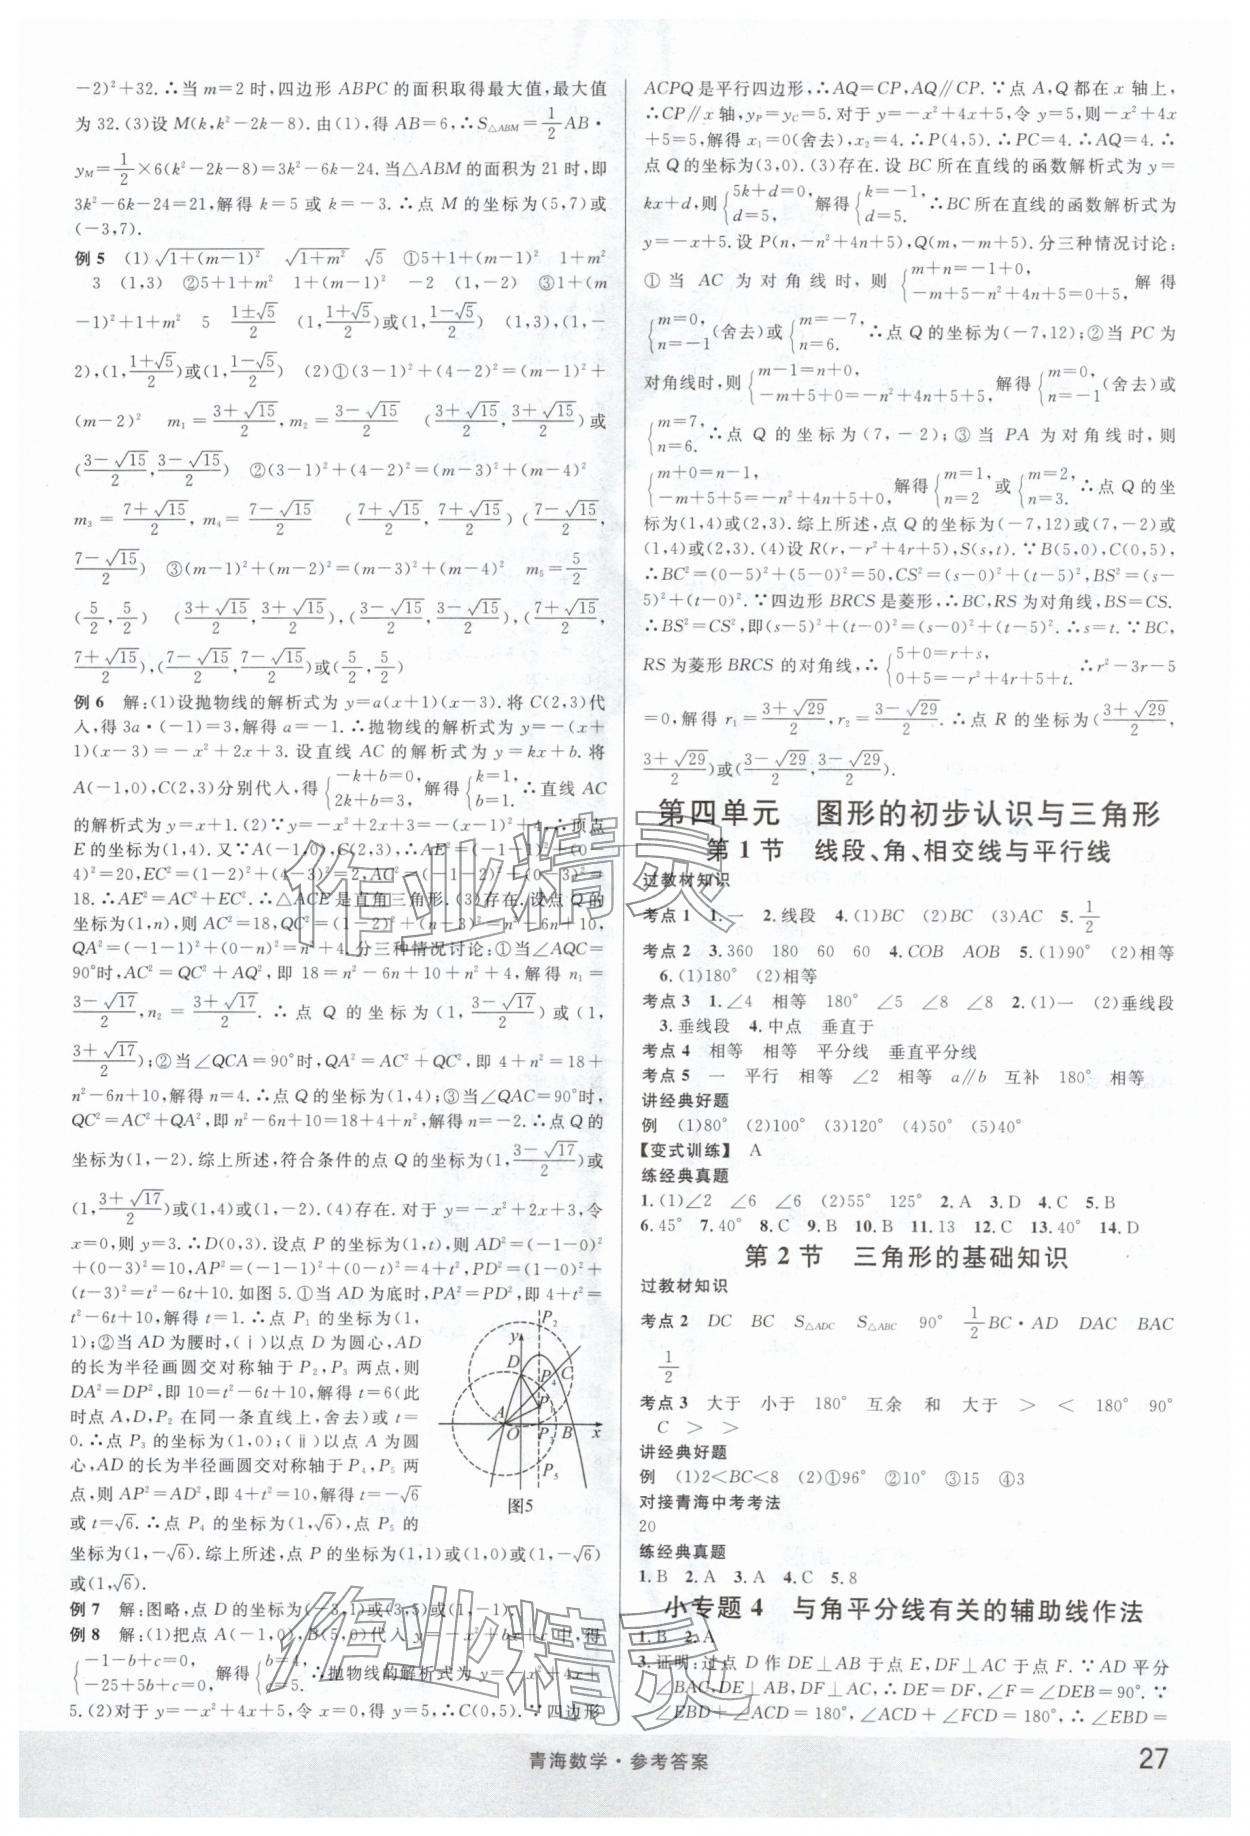 -2)²+32.∴当 m=2 时,四边形 ABPC 的面积取得最大值,最大值
为 32.(3)设 M(k,k²-2k-8).由(1),得 AB=6,∴S△ABM=1/2AB·
yM=1/2×6(k²-2k-8)=3k²-6k-24.当△ABM 的面积为 21 时,即
3k²-6k-24=21,解得 k=5 或 k=-3.∴点 M 的坐标为(5,7)或
(-3,7).
例 5 (1)√(1+(m-1)²) √(1+m²) √5 ①5+1+(m-1)² 1+m²
3 (1,3) ②5+1+m² 1+(m-1)² -2 (1,-2) ③1+(m
-1)²+1+m² 5 (1±√5)/2 (1,(1+√5)/2)或(1,(1-√5)/2) (1,3),(1,-
2),(1,(1+√5)/2)或(1,(1-√5)/2) (2)①(3-1)²+(4-2)²=(m-1)²+
(m-2)² m₁=(3+√15)/2,m₂=(3-√15)/2 ((3+√15)/2,(3+√15)/2)或
((3-√15)/2,(3-√15)/2) ②(3-1)²+(4-2)²=(m-3)²+(m-4)²
m₃=(7+√15)/2,m₄=(7-√15)/2 ((7+√15)/2,(7+√15)/2)((7-√15)/2,
(7-√15)/2) ③(m-1)²+(m-2)²=(m-3)²+(m-4)² m₅=5/2
(5/2,5/2) ((3+√15)/2,(3+√15)/2),((3-√15)/2,(3-√15)/2),((7+√15)/2,
(7+√15)/2),((7-√15)/2,(7-√15)/2)或(5/2,5/2)
例 6 解:(1)设抛物线的解析式为 y=a(x+1)(x-3).将 C(2,3)代
入,得 3a·(-1)=3,解得 a=-1.∴抛物线的解析式为 y=-(x+
1)(x-3)=-x²+2x+3.设直线 AC 的解析式为 y=kx+b.将
A(-1,0),C(2,3)分别代入,得{-k+b=0,2k+b=3,解得{k=1,b=1.∴直线 AC
的解析式为 y=x+1.(2)∵y=-x²+2x+3=-(x-1)²+4,∴顶点
E 的坐标为(1,4).又∵A(-1,0),C(2,3),∴AE²=(-1-1)²+(0-
4)²=20,EC²=(1-2)²+(4-3)²=2,AC²=(-1-2)²+(0-3)²=
18.∴AE²=AC²+EC².∴△ACE是直角三角形.(3)存在.设点 Q 的
坐标为(1,n),则 AC²=18,QC²=(1-2)²+(n-3)²=n²-6n+10,
QA²=(-1-1)²+(0-n)²=n²+4.分三种情况讨论:①当∠AQC=
90°时,AC²=QC²+AQ²,即 18=n²-6n+10+n²+4,解得 n₁=
(3-√17)/2,n₂=(3+√17)/2.∴点 Q 的坐标为(1,(3-√17)/2)或(1,
(3+√17)/2);②当∠QCA=90°时,QA²=AC²+QC²,即 4+n²=18+
n²-6n+10,解得 n=4.∴点 Q 的坐标为(1,4);③当∠QAC=90°时,
QC²=AC²+QA²,即 n²-6n+10=18+4+n²,解得 n=-2.∴点 Q 的
坐标为(1,-2).综上所述,符合条件的点 Q 的坐标为(1,(3-√17)/2)或
(1,(3+√17)/2)或(1,4)或(1,-2).(4)存在.对于 y=-x²+2x+3,令
x=0,则 y=3.∴D(0,3).设点 P 的坐标为(1,t),则 AD²=(-1-0)²
+(0-3)²=10,AP²=(-1-1)²+(0-t)²=4+t²,PD²=(1-0)²+
(t-3)²=t²-6t+10.如图 5.①当 AD 为底时,PA²=PD²,即 4+t²=
t²-6t+10,解得 t=1.∴点 P₁ 的坐标为(1,
1);②当 AD 为腰时,(ⅰ)以点 D 为圆心,AD
的长为半径画圆交对称轴于 P₂,P₃ 两点,则
DA²=DP²,即 10=t²-6t+10,解得 t=6(此
时点 A,D,P₂ 在同一条直线上,舍去)或 t=
0.∴点 P₃ 的坐标为(1,0);(ⅱ)以点 A 为圆
心,AD 的长为半径画圆交对称轴于 P₄,P₅ 两
点,则 AP²=AD²,即 4+t²=10,解得 t=-√6
或 t=√6.∴点 P₄ 的坐标为(1,√6),点 P₅ 的
坐标为(1,-√6).综上所述,点 P 的坐标为(1,1)或(1,0)或(1,-√6)
或(1,√6).
y P₂ D P₄ C P₁ A O P₃ B x P₅
图5
例 7 解:图略,点 D 的坐标为(-3,1)或(3,5)或(1,-1).
例 8 解:(1)把点 A(-1,0),B(5,0)代入 y=-x²+bx+c 中,得
{-1-b+c=0,-25+5b+c=0,解得{b=4,c=5.∴抛物线的解析式为 y=-x²+4x+
5.(2)对于 y=-x²+4x+5,令 x=0,得 y=5.∴C(0,5).∵四边形
ACPQ 是平行四边形,∴AQ=CP,AQ∥CP.∵点 A,Q 都在 x 轴上,
∴CP∥x 轴,yP=yC=5.对于 y=-x²+4x+5,令 y=5,则-x²+4x
+5=5,解得 x₁=0(舍去),x₂=4.∴P(4,5).∴PC=4.∴AQ=4.∴
点 Q 的坐标为(3,0).(3)存在.设 BC 所在直线的函数解析式为 y=
kx+d,则{5k+d=0,d=5,解得{k=-1,d=5.∴BC 所在直线的函数解析式为
y=-x+5.设 P(n,-n²+4n+5),Q(m,-m+5).分三种情况讨论:
①当 AC 为对角线时,则{m+n=-1+0,-m+5-n²+4n+5=0+5,解得
{m=0,n=-1(舍去)或{m=-7,n=6.∴点 Q 的坐标为(-7,12);②当 PC 为
对角线时,则{m-1=n+0,-m+5+0=-n²+4n+5+5,解得{m=0,n=-1(舍去)或
{m=7,n=6.∴点 Q 的坐标为(7,-2);③当 PA 为对角线时,则
{m+0=n-1,-m+5+5=-n²+4n+5+0,解得{m=1,n=2或{m=2,n=3.∴点 Q 的坐
标为(1,4)或(2,3).综上所述,点 Q 的坐标为(-7,12)或(7,-2)或
(1,4)或(2,3).(4)设 R(r,-r²+4r+5),S(s,t).∵B(5,0),C(0,5),
∴BC²=(0-5)²+(5-0)²=50,CS²=(s-0)²+(t-5)²,BS²=(s-
5)²+(t-0)².∵四边形 BRCS 是菱形,∴BC,RS 为对角线,BS=CS.
∴BS²=CS²,即(s-5)²+(t-0)²=(s-0)²+(t-5)².∴s=t.∵BC,
RS 为菱形 BRCS 的对角线,∴{5+0=r+s,0+5=-r²+4r+5+t.∴r²-3r-5
=0,解得 r₁=(3+√29)/2,r₂=(3-√29)/2.∴点 R 的坐标为((3+√29)/2,
(3+√29)/2)或((3-√29)/2,(3-√29)/2).
第四单元 图形的初步认识与三角形
第 1 节 线段、角、相交线与平行线
过教材知识
考点 1 1.一 2.线段 4.(1)BC (2)BC (3)AC 5.1/2
考点 2 3.360 180 60 60 4.COB AOB 5.(1)90° (2)相等
6.(1)180° (2)相等
考点 3 1.∠4 相等 180° ∠5 ∠8 ∠8 2.(1)一 (2)垂线段
3.垂线段 4.中点 垂直于
考点 4 相等 相等 平分线 垂直平分线
考点 5 一 平行 相等 ∠2 相等 a∥b 互补 180° 相等
讲经典好题
例 (1)80° (2)100° (3)120° (4)50° (5)40°
【变式训练】 A
练经典真题
1.(1)∠2 ∠6 ∠6 (2)55° 125° 2.A 3.D 4.C 5.B
6.45° 7.40° 8.C 9.B 10.B 11.13 12.C 13.40° 14.D
第 2 节 三角形的基础知识
过教材知识
考点 2 DC BC S△ADC S△ABC 90° 1/2BC·AD DAC BAC
1/2
考点 3 大于 小于 180° 互余 和 大于 > < 180° 90°
C > >
讲经典好题
例 (1)2<BC<8 (2)①96° ②10° ③15 ④3
对接青海中考考法
20
练经典真题
1.B 2.A 3.A 4.C 5.8
小专题 4 与角平分线有关的辅助线作法
1.B 2.A
3.证明:过点 D 作 DE⊥AB 于点 E,DF⊥AC 于点 F.∵AD 平分
∠BAC,DE⊥AB,DF⊥AC,∴DE=DF,∠F=∠DEB=90°.∵
∠EBD+∠ACD=180°,∠ACD+∠FCD=180°,∴∠EBD=
作业精灵
作业精灵
青海数学·参考答案
27